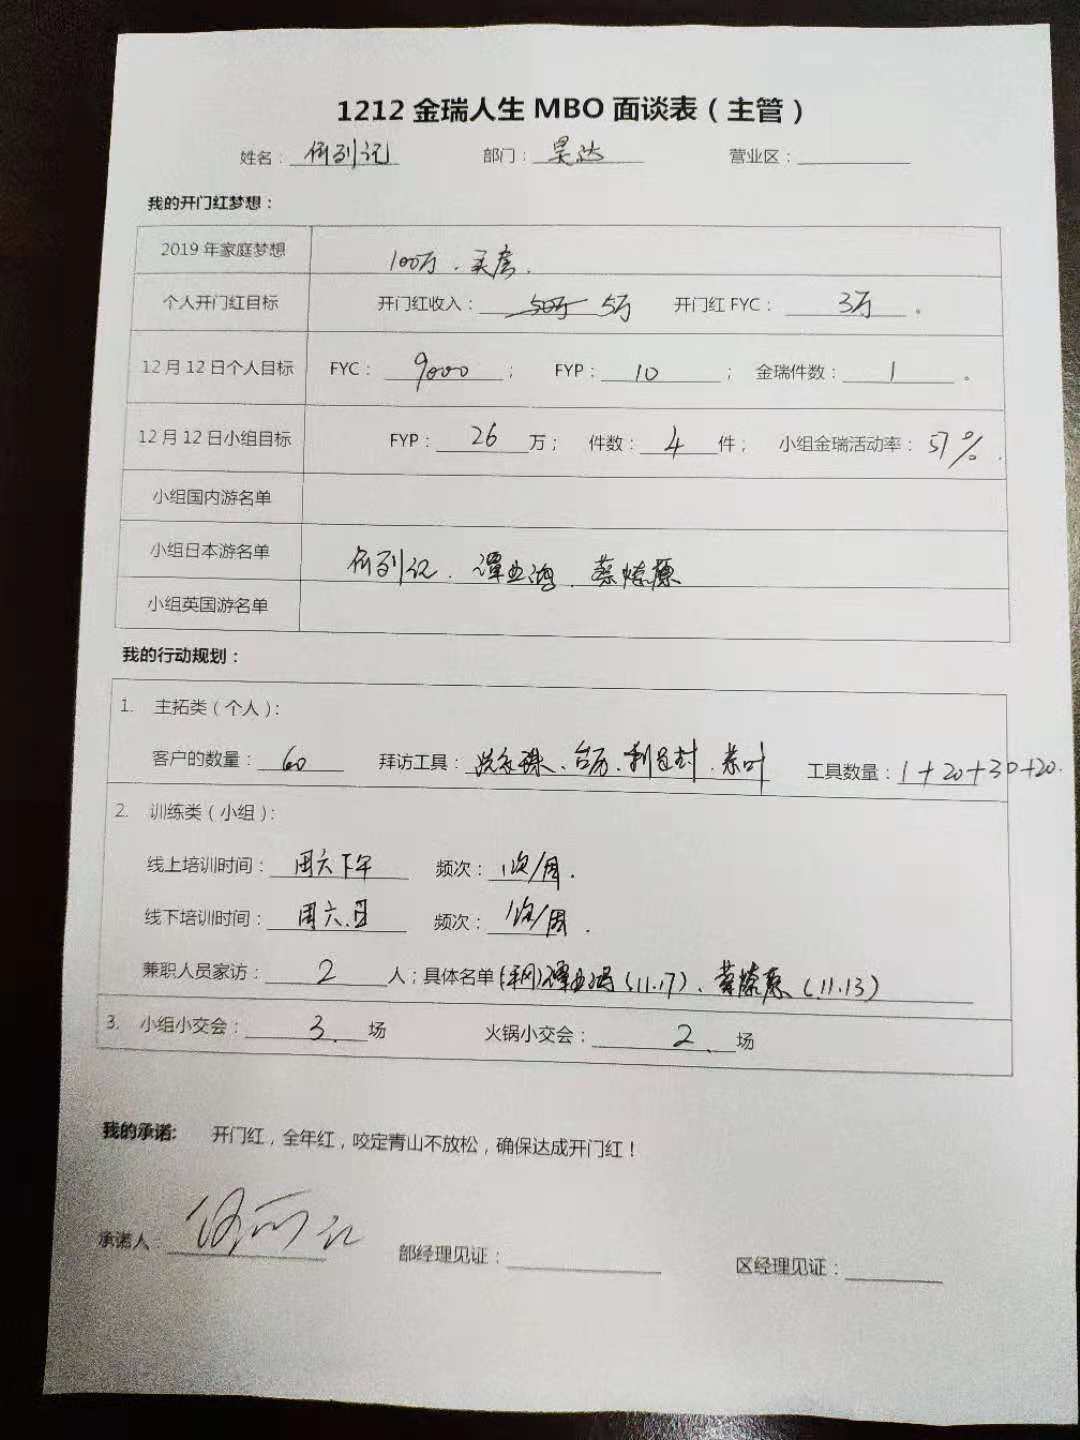 1212 金瑞人生 MBO 面谈表（主管）
姓名： 何列记 部门： 昊达 营业区：
我的开门红梦想：
2019 年家庭梦想 100万、买房.
个人开门红目标 开门红收入： 5万 开门红 FYC： 3万 。
12 月 12 日个人目标 FYC： 9000 ； FYP： 10 ； 金瑞件数： 1 。
12 月 12 日小组目标 FYP： 26 万； 件数： 4 件； 小组金瑞活动率： 57%.
小组国内游名单
小组日本游名单 何列记、谭业鸿、蔡燎原
小组英国游名单
我的行动规划：
1. 主拓类（个人）：
客户的数量： 60 拜访工具： 台历、利是封、茶叶 工具数量： 1+20+30+20.
2. 训练类（小组）：
线上培训时间： 周六下午 频次： 1次/周.
线下培训时间： 周六.日 频次： 1次/周.
兼职人员家访： 2 人；具体名单 谭业鸿（11.17）、蔡燎原（11.13）
3. 小组小交会： 3. 场 火锅小交会： 2. 场
我的承诺: 开门红，全年红，咬定青山不放松，确保达成开门红！
承诺人： 何列记 部经理见证： 区经理见证：